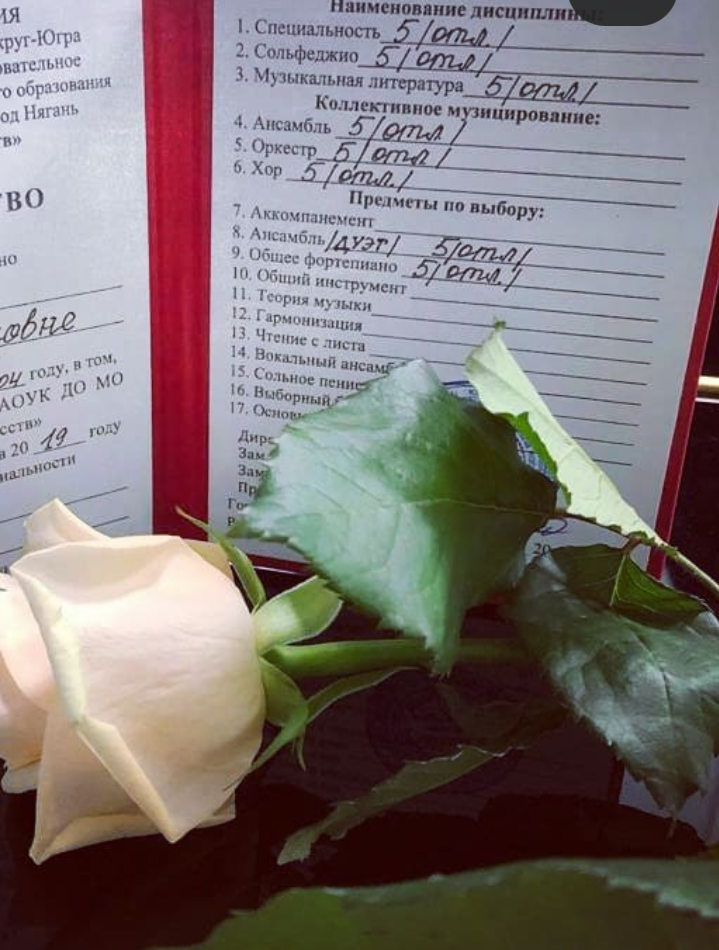 ИЯ
круг-Югра
овательное
го образования
од Нягань
тв»
ТВО
но
овне
04 году, в том,
АОУК ДО МО
сств»
в 20 19 году
иальности
Наименование дисциплины:
1. Специальность 5/отл./
2. Сольфеджио 5/отл./
3. Музыкальная литература 5/отл./
Коллективное музицирование:
4. Ансамбль 5/отл./
5. Оркестр 5/отл./
6. Хор 5/отл./
Предметы по выбору:
7. Аккомпанемент
8. Ансамбль /дуэт/ 5/отл/
9. Общее фортепиано 5/отл./
10. Общий инструмент
11. Теория музыки
12. Гармонизация
13. Чтение с листа
14. Вокальный ансамб
15. Сольное пение
16. Выборный
17. Основы
Дире
Зам
Зам
Пр
Го
20